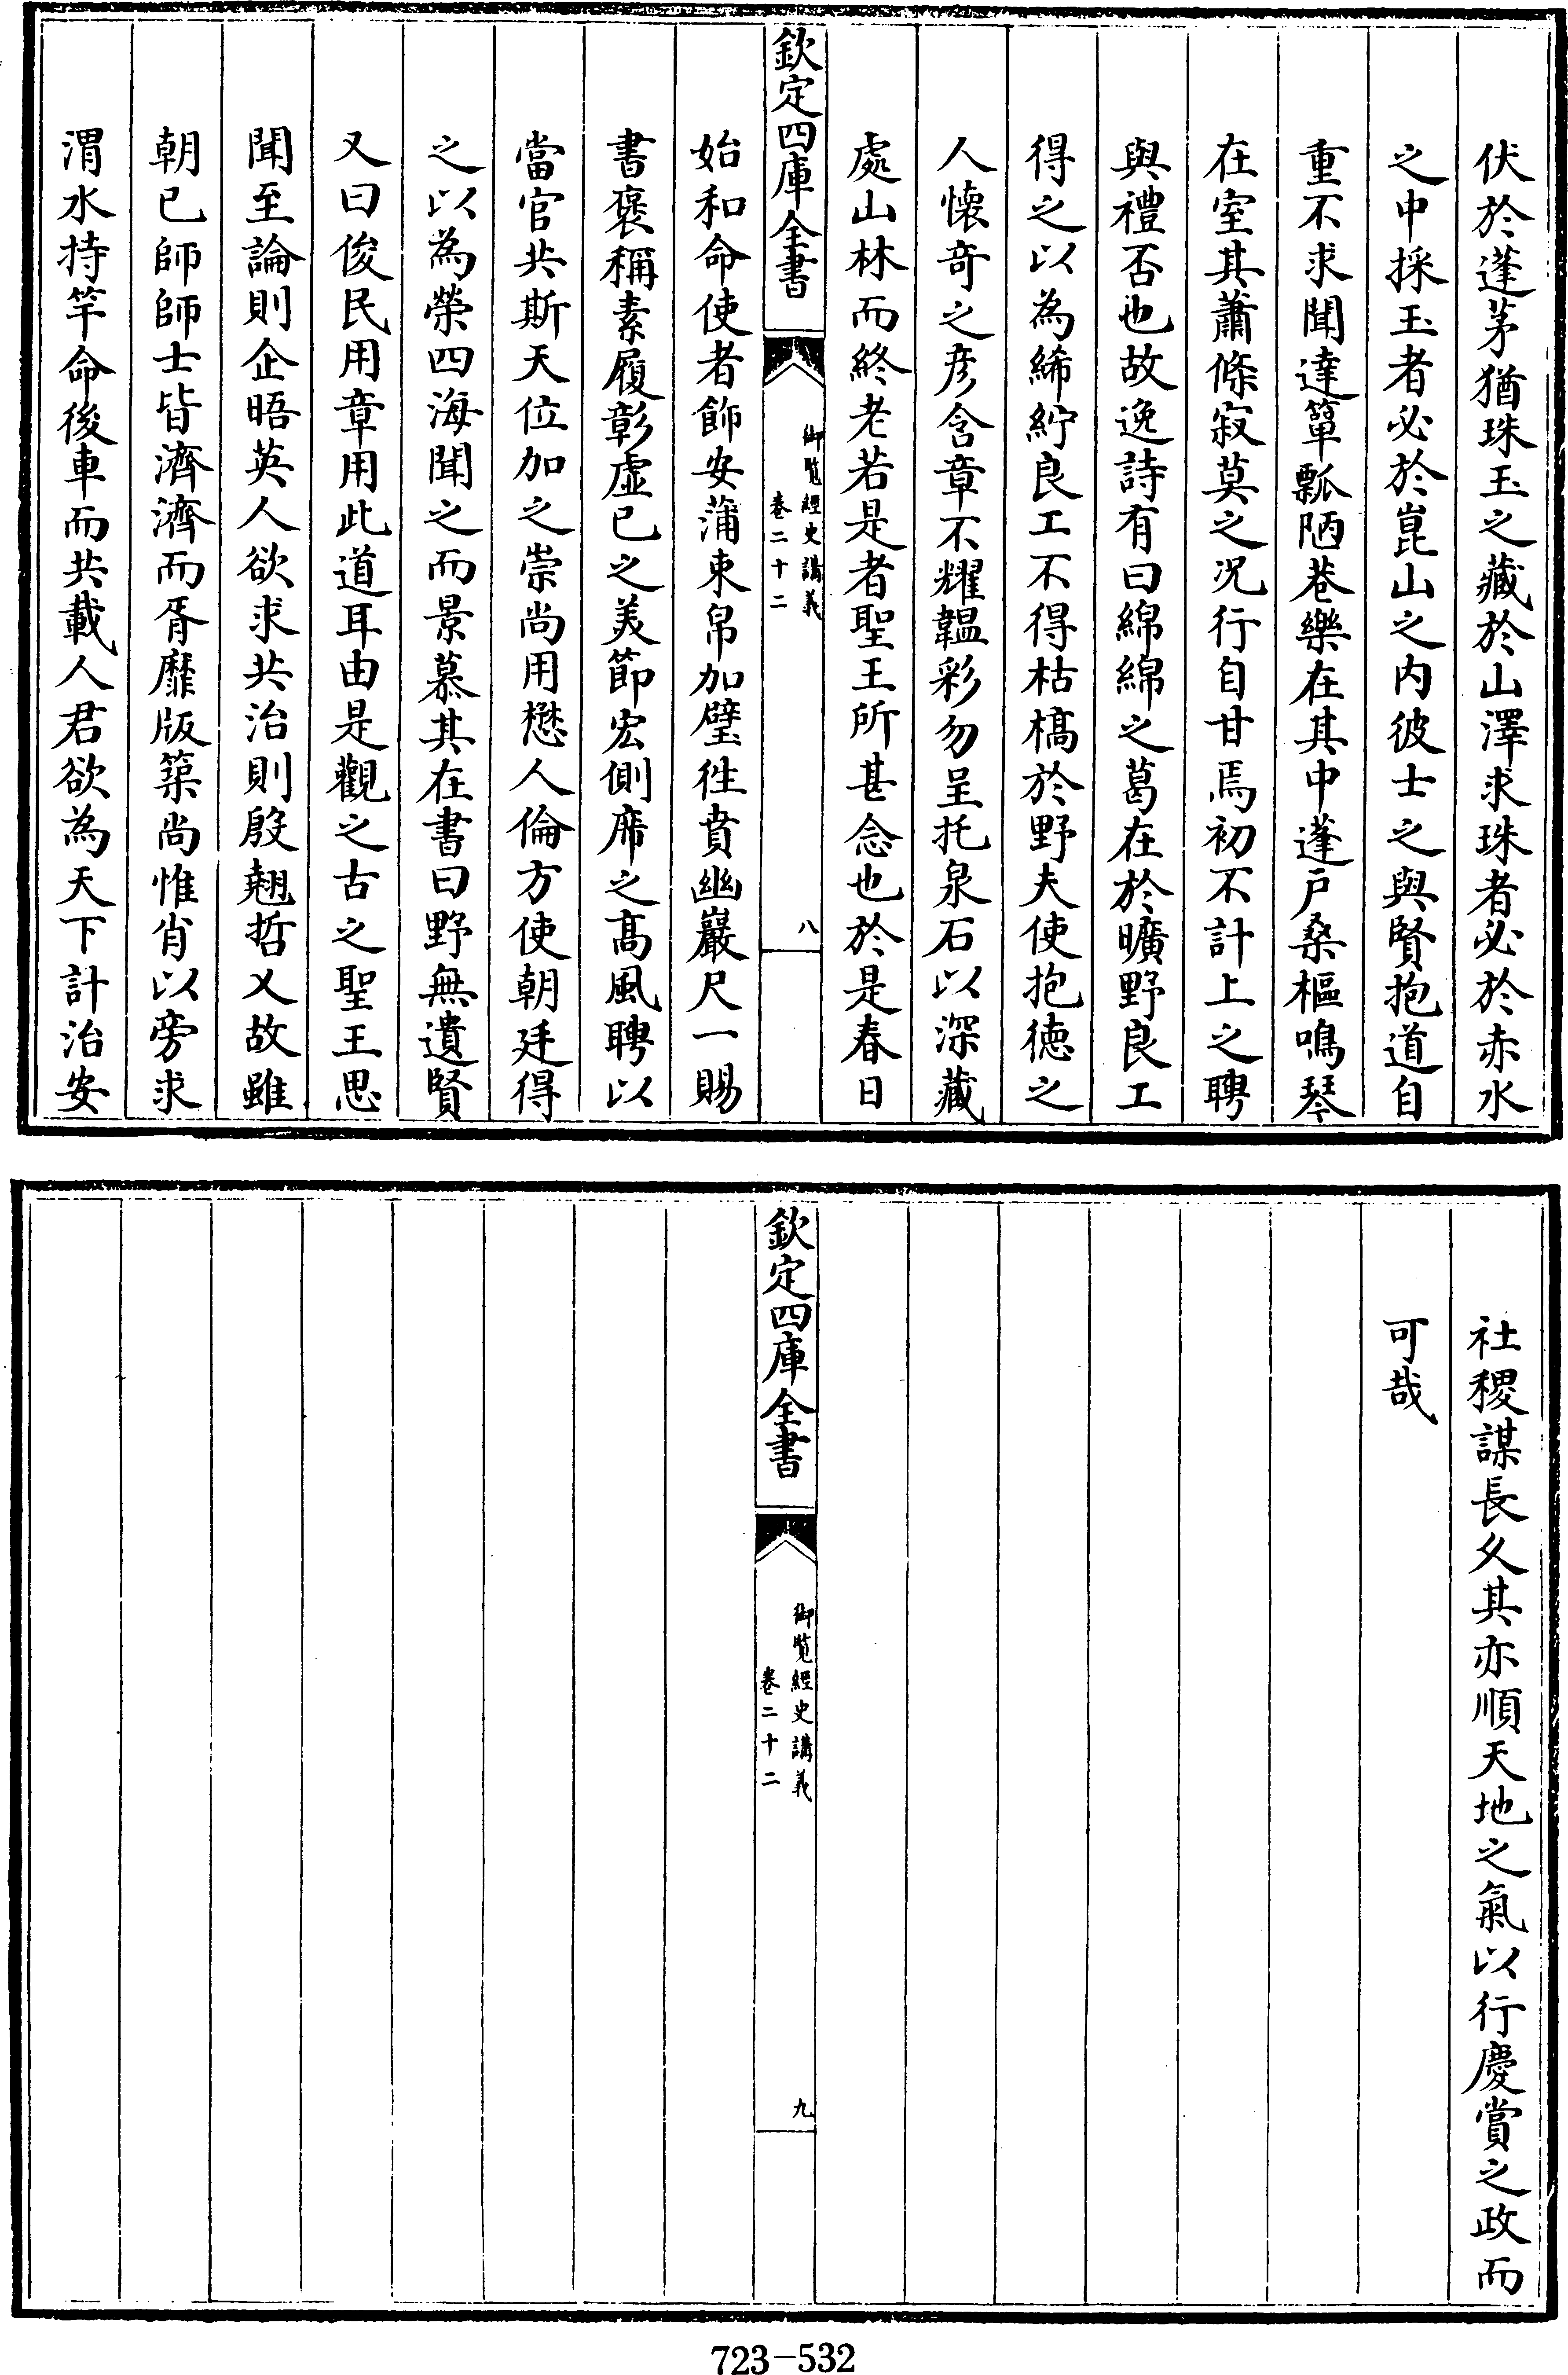 伏於蓬茅猶珠玉之藏於山澤求珠者必於赤水
之中採玉者必於崑山之内彼士之與賢抱道自
重不求聞達簞瓢陋巷樂在其中蓬戸桑樞鳴琴
在室其蕭條寂莫之况行自甘焉初不計上之聘
與禮否也故逸詩有曰綿綿之葛在於曠野良工
得之以為絺紵良工不得枯槁於野夫使抱德之
人懷奇之彦含章不耀韞彩勿呈托泉石以深藏
處山林而終老若是者聖王所甚念也於是春日
欽定四庫全書
御覧經史講義
卷二十二
八
始和命使者飾安蒲束帛加璧徃賁幽巖尺一賜
書褒稱素履彰虚已之美節宏側席之髙風聘以
當官共斯天位加之崇尚用懋人倫方使朝廷得
之以為榮四海聞之而景慕其在書曰野無遺賢
又曰俊民用章用此道耳由是觀之古之聖王思
聞至論則企晤英人欲求共治則殷翹哲乂故雖
朝已師師士皆濟濟而胥靡版築尚惟肖以旁求
渭水持竿命後車而共載人君欲為天下計治安
社稷謀長久其亦順天地之氣以行慶賞之政而
可哉
欽定四庫全書
御覧經史講義
卷二十二
九
723-532